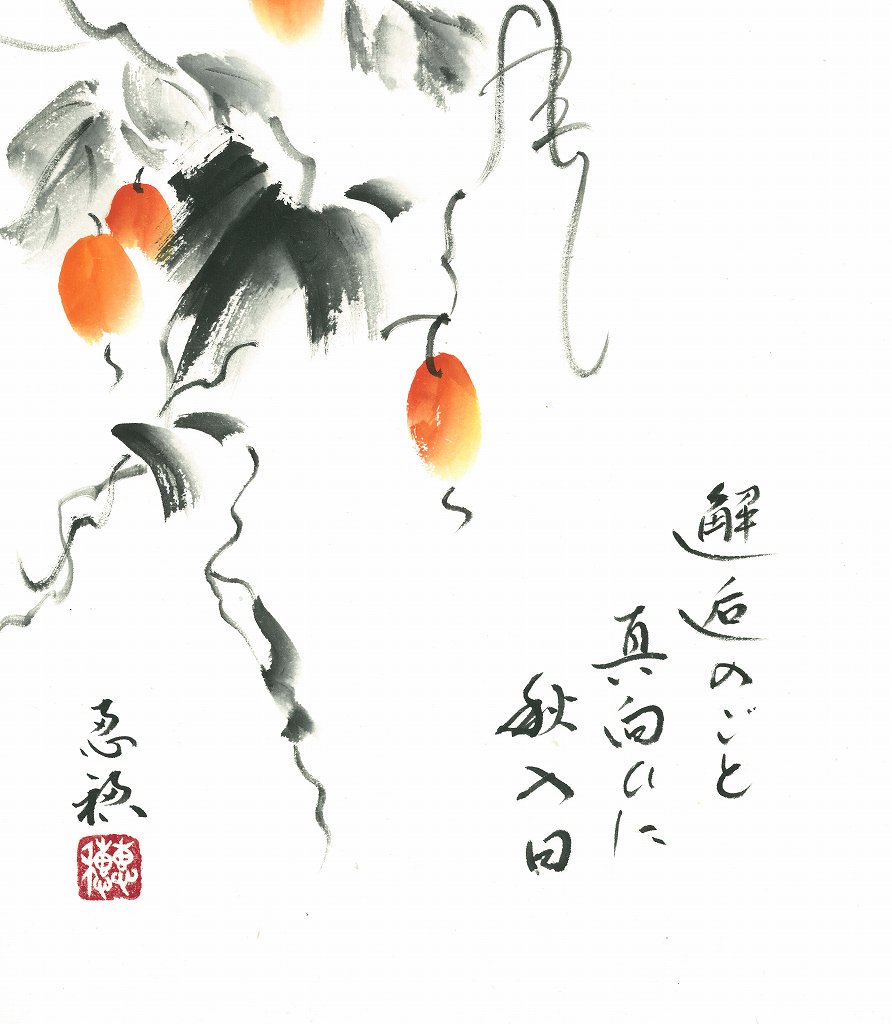 邂逅のごと
真向ひに
秋入日
恵穂
恵穂